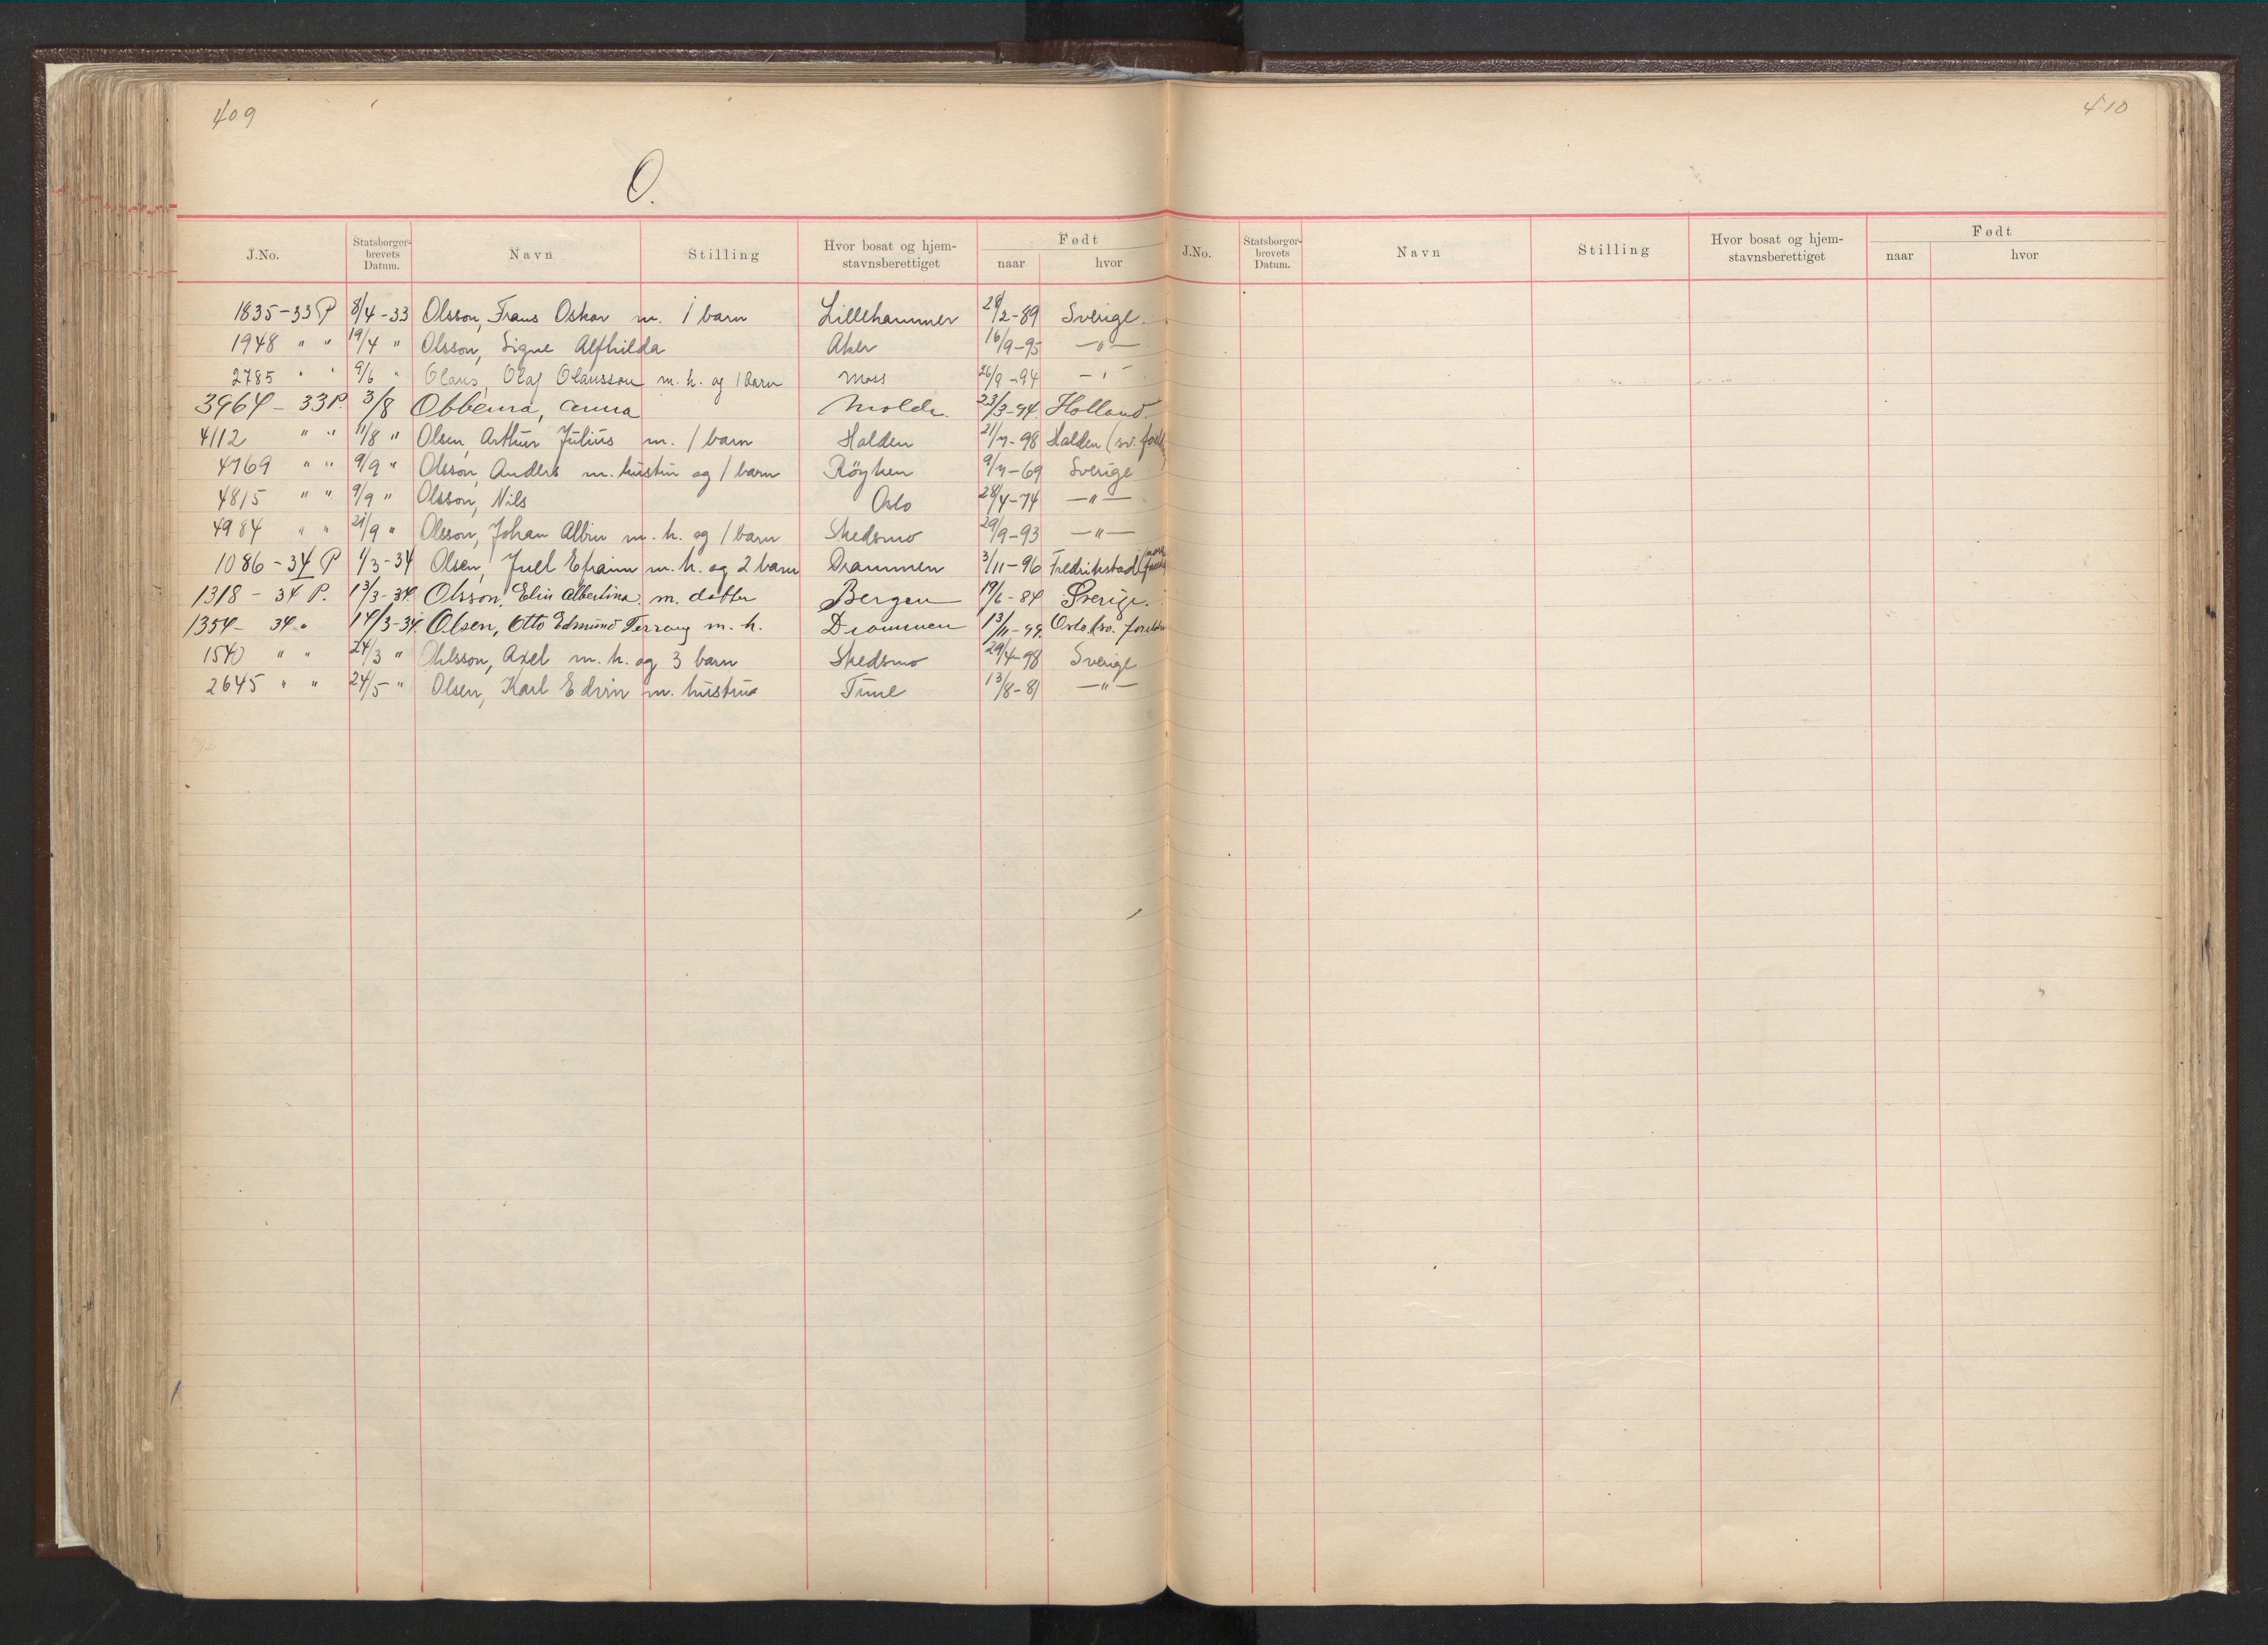 409
O.
J.No. Statsborger-brevets Datum. Navn Stilling Hvor bosat og hjem-stavnsberettiget Født naar hvor
1835-33 P 8/4-33 Olsson, Frans Oskar m. 1 barn Lillehammer 28/2-89 Sverige.
1948 " " 19/4 " Olsson, Signe Alfhilda Aker 16/9-95 —"—
2785 " " 9/6 " Olaus, Olaf Olausson m. h. og 1 barn Moss 26/9-94 —"—
3964-33 P. 3/8 Obbema, Anna Molde. 23/3-94. Holland.
4112 " " 11/8 " Olsen, Arthur Julius m. 1 barn Halden 21/7-98 Halden (sv.
4769 " " 9/9 " Olsson, Anders m. hustru og 1 barn Röyken 9/7-69 Sverige
4815 " " 9/9 " Olsson, Nils Oslo 28/4-74 —"—
4984 " " 21/9 " Olsson, Johan Albin m. h. og 1 barn Skedsmo 29/9-93 —"—
1086-34 P 1/3-34 Olsen, Juel Efraim m. h. og 2 barn Drammen 3/11-96 Fredrikstad
1318-34 P. 13/3-34. Olsson, Elin Albertina. m. datter Bergen 19/6-84 Sverige.
1354-34 " 14/3-34. Olsen, Otto Edmund m. h. Drammen 13/11-99. Oslo (sv. foreldre
1540 " " 24/3 " Ohlsson, Axel m. h. og 3 barn Skedsmo 29/4-98 Sverige
2645 " " 24/5 " Olsen, Karl Edvin m. hustru Tune 13/8-81 —"—
410
J.No. Statsborger-brevets Datum. Navn Stilling Hvor bosat og hjem-stavnsberettiget Født naar hvor